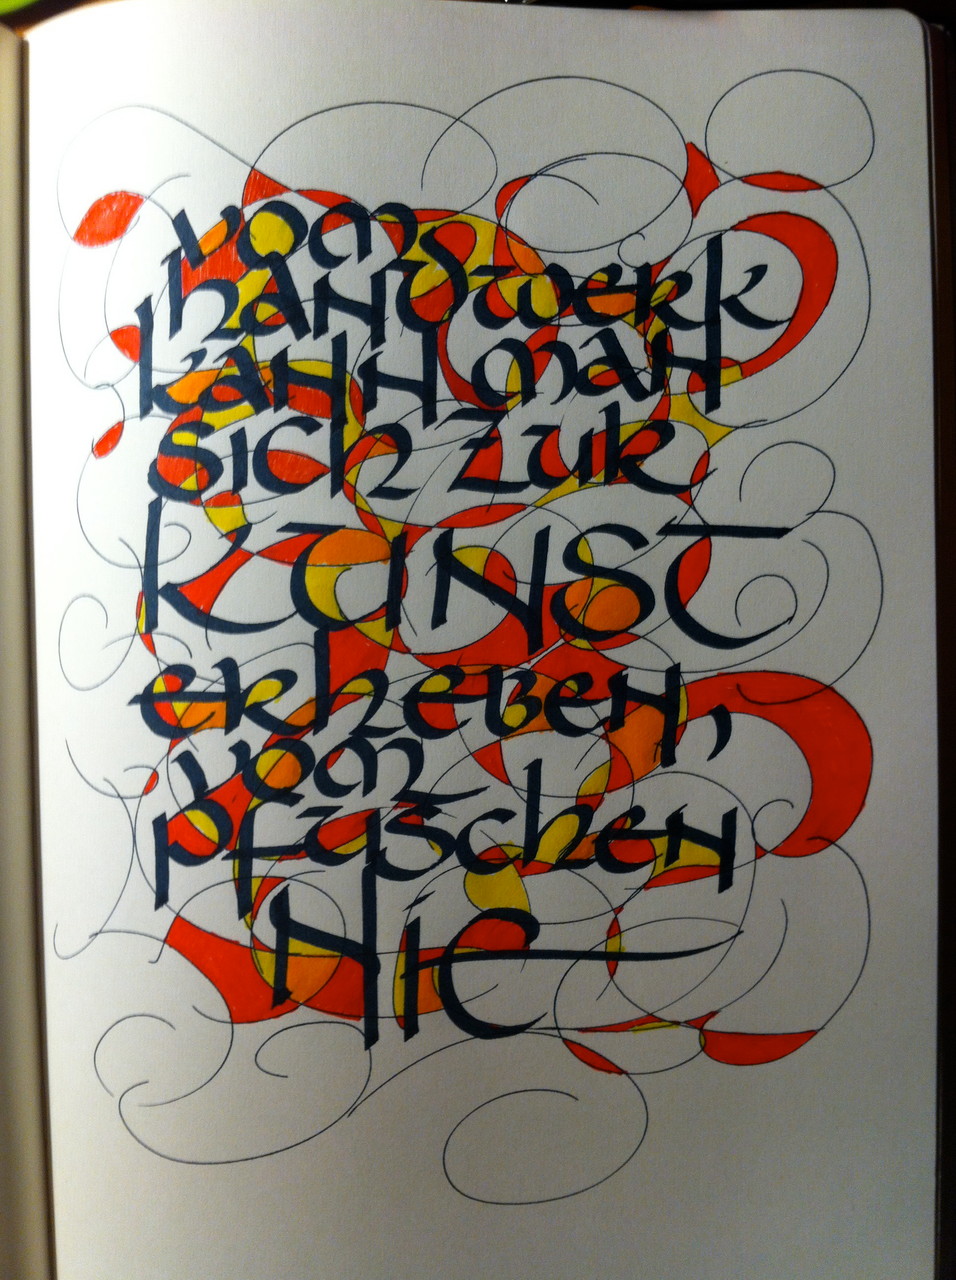 vom
handwerk
kann man
sich zur
KUNST
erheben,
vom
pfuschen
Nie